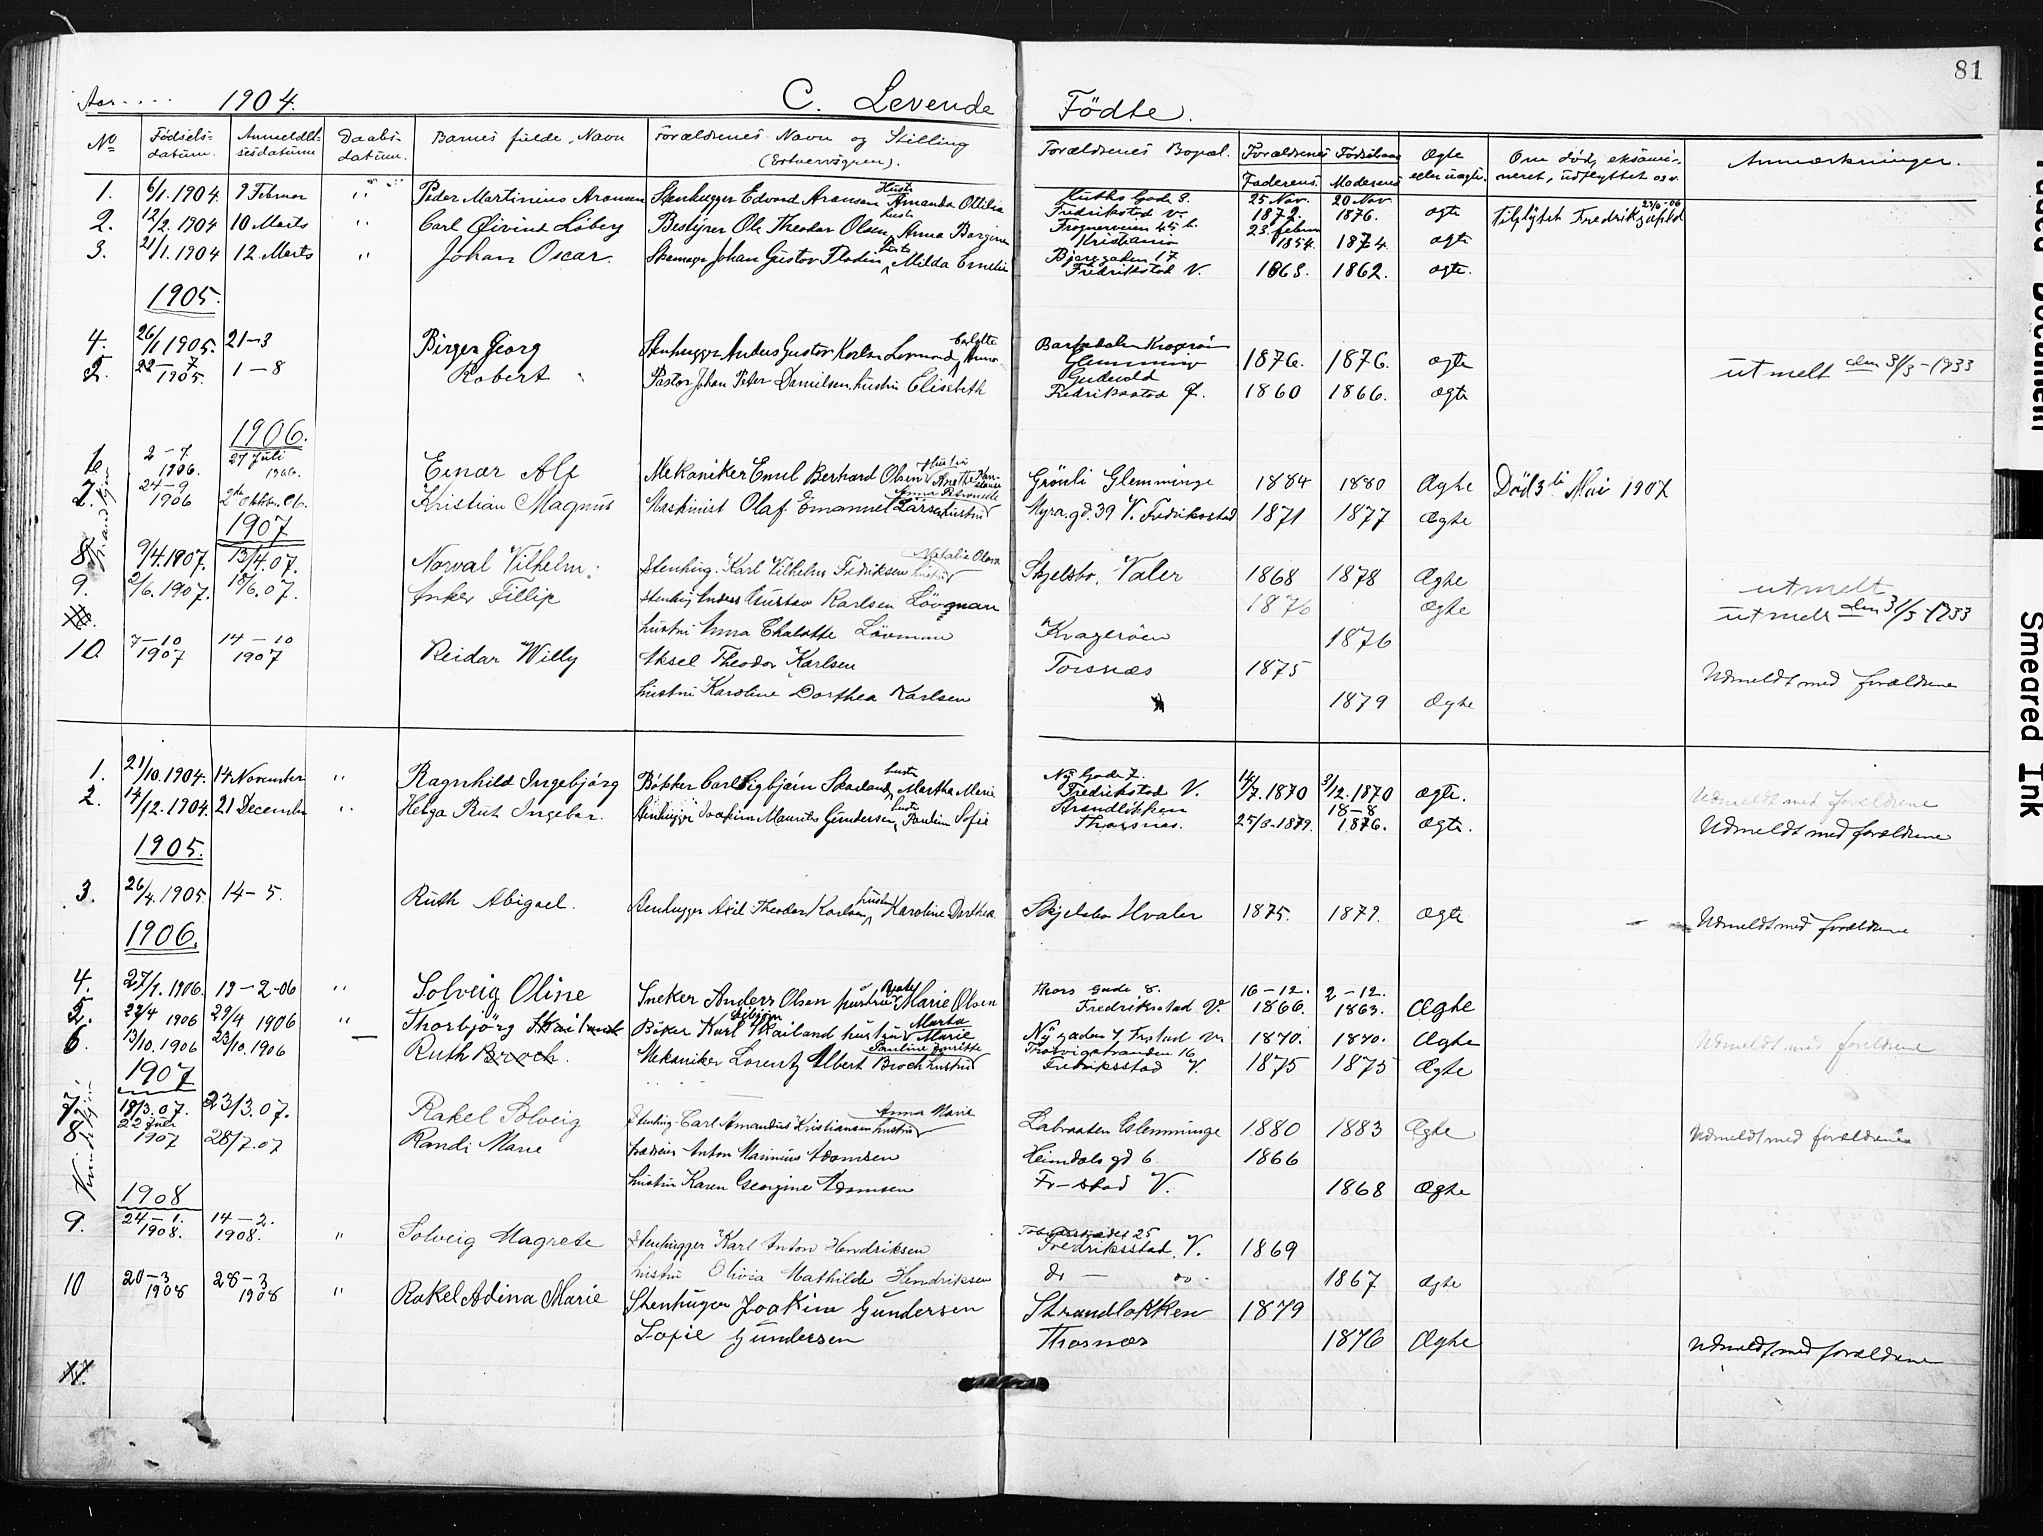 81
Aar 1904. C. Levende Födte.
No Födsels-datum. Anmeldelsesdatum Daabs-datum. Barnets fulde Navn Forældrenes Navn og Stilling (Erhvervsgren). Forældrenes Bopæl. Forældrenes Födselsaar Faderens Moderens Ægte eller uægte. Om död, eksamineret, udflyttet osv. Anmærkninger.
1. 6/1. 1904. 9 Februar " Peder Martinius Aronsen Stenhugger Edvard Aronsen Hustr Amanda Ottilia Huths Gade 9. Fredrikstad V. 25 Nov. 1872. 20 Nov 1876. ægte Tilflyttet Fredrikstad
2. 12/2. 1904 10 Marts " Carl Øivind Löberg Bestyrer Ole Theodor Olsen, hustr Anna Bergine Frognerveien 45 b. Kristiania 23 februar 1854. 1874. ægte
3. 21/1. 1904 12. Marts " Johan Oscar. Skomager Johan Gustav Flodin, hustr Milda Emelie Bjerggaden 17 Fredrikstad V. 1863. 1862. ægte.
1905.
4. 26/1 1905. 21-3 Birger Georg Stenhugger Anders Gustav Karlsen Lövmand, Anna Carlotte Glemminge 1876. 1876. ægte utmelt den 31/3-1933
5. 22-7 1905. 1-8 Robert Pastor Johan Peter Danielsen hustru Elisabeth Gudevold Fredriksstad Ø. 1860 1866. ægte
1906.
2-7 1906. 27 Juli 1906. Einar Alf Mekaniker Emil Bernhard Olsen Hustru Anette Grönli Glemminge 1884 1880 Ægte Död 3die Mai 1907
24-9 1906 2den Oktbr. 06. Kristian Magnus Maskinist Olaf Emanuel Larsen hustru Anna Petronelle Myra.gd. 39 V. Fredriksstad 1871 1877 Ægte
1907
8. 9/4. 1907. 13/4. 07. Norval Vilhelm. Stenhug. Karl Vilhelm Fredriksen hustru Natalie Olava Skjelsbo, Valer 1868 1878 Ægte utmelt
9. 2/6. 1907. 18/6. 07. Anker Fillip Stenhug Anders Gustav Karlsen Lövman 1876 Ægte utmelt den 31/3-1933
hustru Anna Chalotte Lövman Kragerøen 1876
10. 7-10 1907 14-10 1907 Reidar Willy Aksel Theodor Karlsen Torsnæs 1875 Udmeldt med forældrene
hustru Karoline Dorthea Karlsen 1879 Ægte
1. 21/10. 1904. 14. November " Ragnhild Ingebjørg Bøkker Carl Sigbjørn Skailand, hustr Martha Marie Ny Gade 7. Fredrikstad V. 14/7. 1870 3/12. 1870 ægte. Udmeldt med forældrene
2. 14/12. 1904. 21 December " Helga Rut Ingebor. Stenhugger Joakim Maurits Gundersen, hustr Pauline Sofie Strandlökken Thorsnæs. 25/3. 1879. 18-8 1876. ægte. Udmeldt med forældrene
1905.
3. 26/4. 1905 14-5. Ruth Abigael. Stenhugger Axel Theodor Karlsen, hustru Karoline Dorthea Skjelsbo Hvaler 1875. 1879. ægte Udmeldt med forældrene
1906.
4. 27/1. 1906. 19-2-06 " Solveig Oline Sneker Anders Olsen hustru Marie Olsen Thors Gade 8. Fredriksstad V. 16-12. 1866. 2-12. 1863. Ægte
5. 22/4 1906 29/4 1906 " Thorbjörg Skailand Böker Karl Sigbjörn Skailand hustru Marta Marie Ny gaden 7 Frstad V. 1870. 1870. Ægte Udmeldt med forældrene
6. 13/10. 1906 23/10. 1906 Ruth Broch. Mekaniker Lorentz Albert Broch hustru Pauline Fredriksstad V. 1875 1875 Ægte
1907
7. 19/3. 07. 23/3. 07. Rakel Solveig Stenhug. Carl Amandus Kristiansen hustru Anna Marie Labraaten Glemminge 1880 1883 Ægte Udmeldt med forældrene
8. 22 Juli 1907 28/7. 07 Randi Marie Anton Marinius Adamsen Heimdals gd 6. 1866
hustru Karen Georgine Adamsen Fr-stad V. 1868 Ægte
1908
9. 24-1. 1908. 14-2. 1908. " Solveig Magrete Stenhugger Karl Anton Hendriksen 25 Fredriksstad. V. 1869
hustru Olivia Mathilde Hendriksen do - do - 1867 ægte
10 20-3 1908 28-3 1908 " Rakel Adina Marie Stenhuger Joakim Gundersen Strandlokken 1879
Sofie Gundersen Thorsnæs 1876 Ægte Udmeldt med forældrene
11.
Smeared Ink